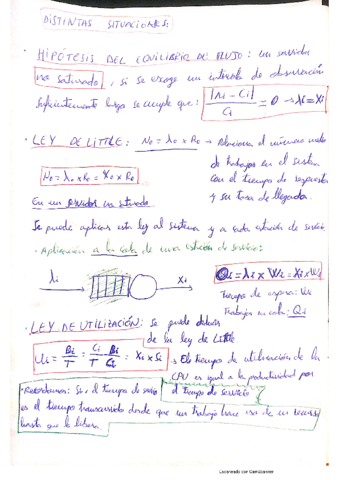 DISTINTAS SITUACIONES:
· HIPÓTESIS DEL EQUILIBRIO DE FLUJO: en un servidor
no saturado, si se escoge un intervalo de observación
suficientemente largo se cumple que: |Ai - Ci| / Ci = 0 → λi = Xi
· LEY DE LITTLE: No = λo x Ro → Relaciona el número medio
de trabajos en el sistema
No = λo x Ro = Xo x Ro
con el tiempo de respuesta
y su tasa de llegada.
En un servidor no saturado
Se puede aplicar esta ley al sistema y a cada estación de servicio
· Aplicación a la cola de una estación de servicio:
λi
Xi
Qi = λi x Wi = Xi x Wi
Tiempo de espera: Wi
Trabajos en cola: Qi
· LEY DE UTILIZACIÓN: Se puede deducir
de la ley de Little
Ui = Bi/T = Ci/T Bi/Ci = Xi x Si
· El tiempo de utilización de la
CPU es igual a la productividad por
el tiempo de servicio
· Recordamos: Si el tiempo de servicio
es el tiempo transcurrido donde que un trabajo hace uso de un recurso
hasta que lo libera.
Escaneado con CamScanner